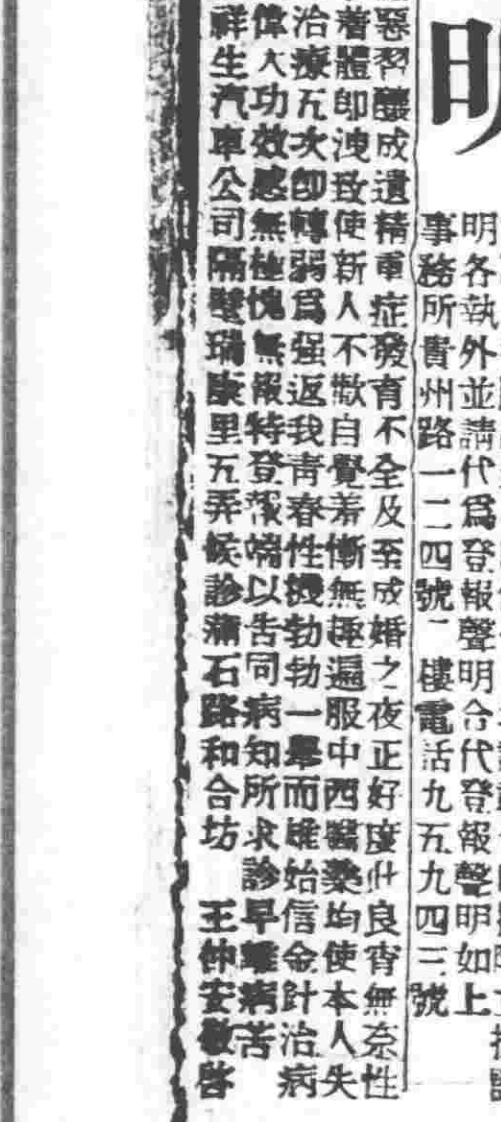 明
明各執外並請代爲登報聲明合代登報聲明如上
事務所貴州路一二四號二樓電話九五九四三號
惡習釀成遺精重症發育不全及至成婚之夜正好度此良宵無奈性
着體卽洩致使新人不歡自覺羞慚無趣遍服中西醫藥均使本人失
治療五次卽轉弱爲强返我青春性機勃勃一舉而雄始信金針治病
偉大功效感無極愧無報特登報端以告同病知所求診早離病苦
祥生汽車公司隔壁瑞康里五弄候診蒲石路和合坊　王仲安敬啓